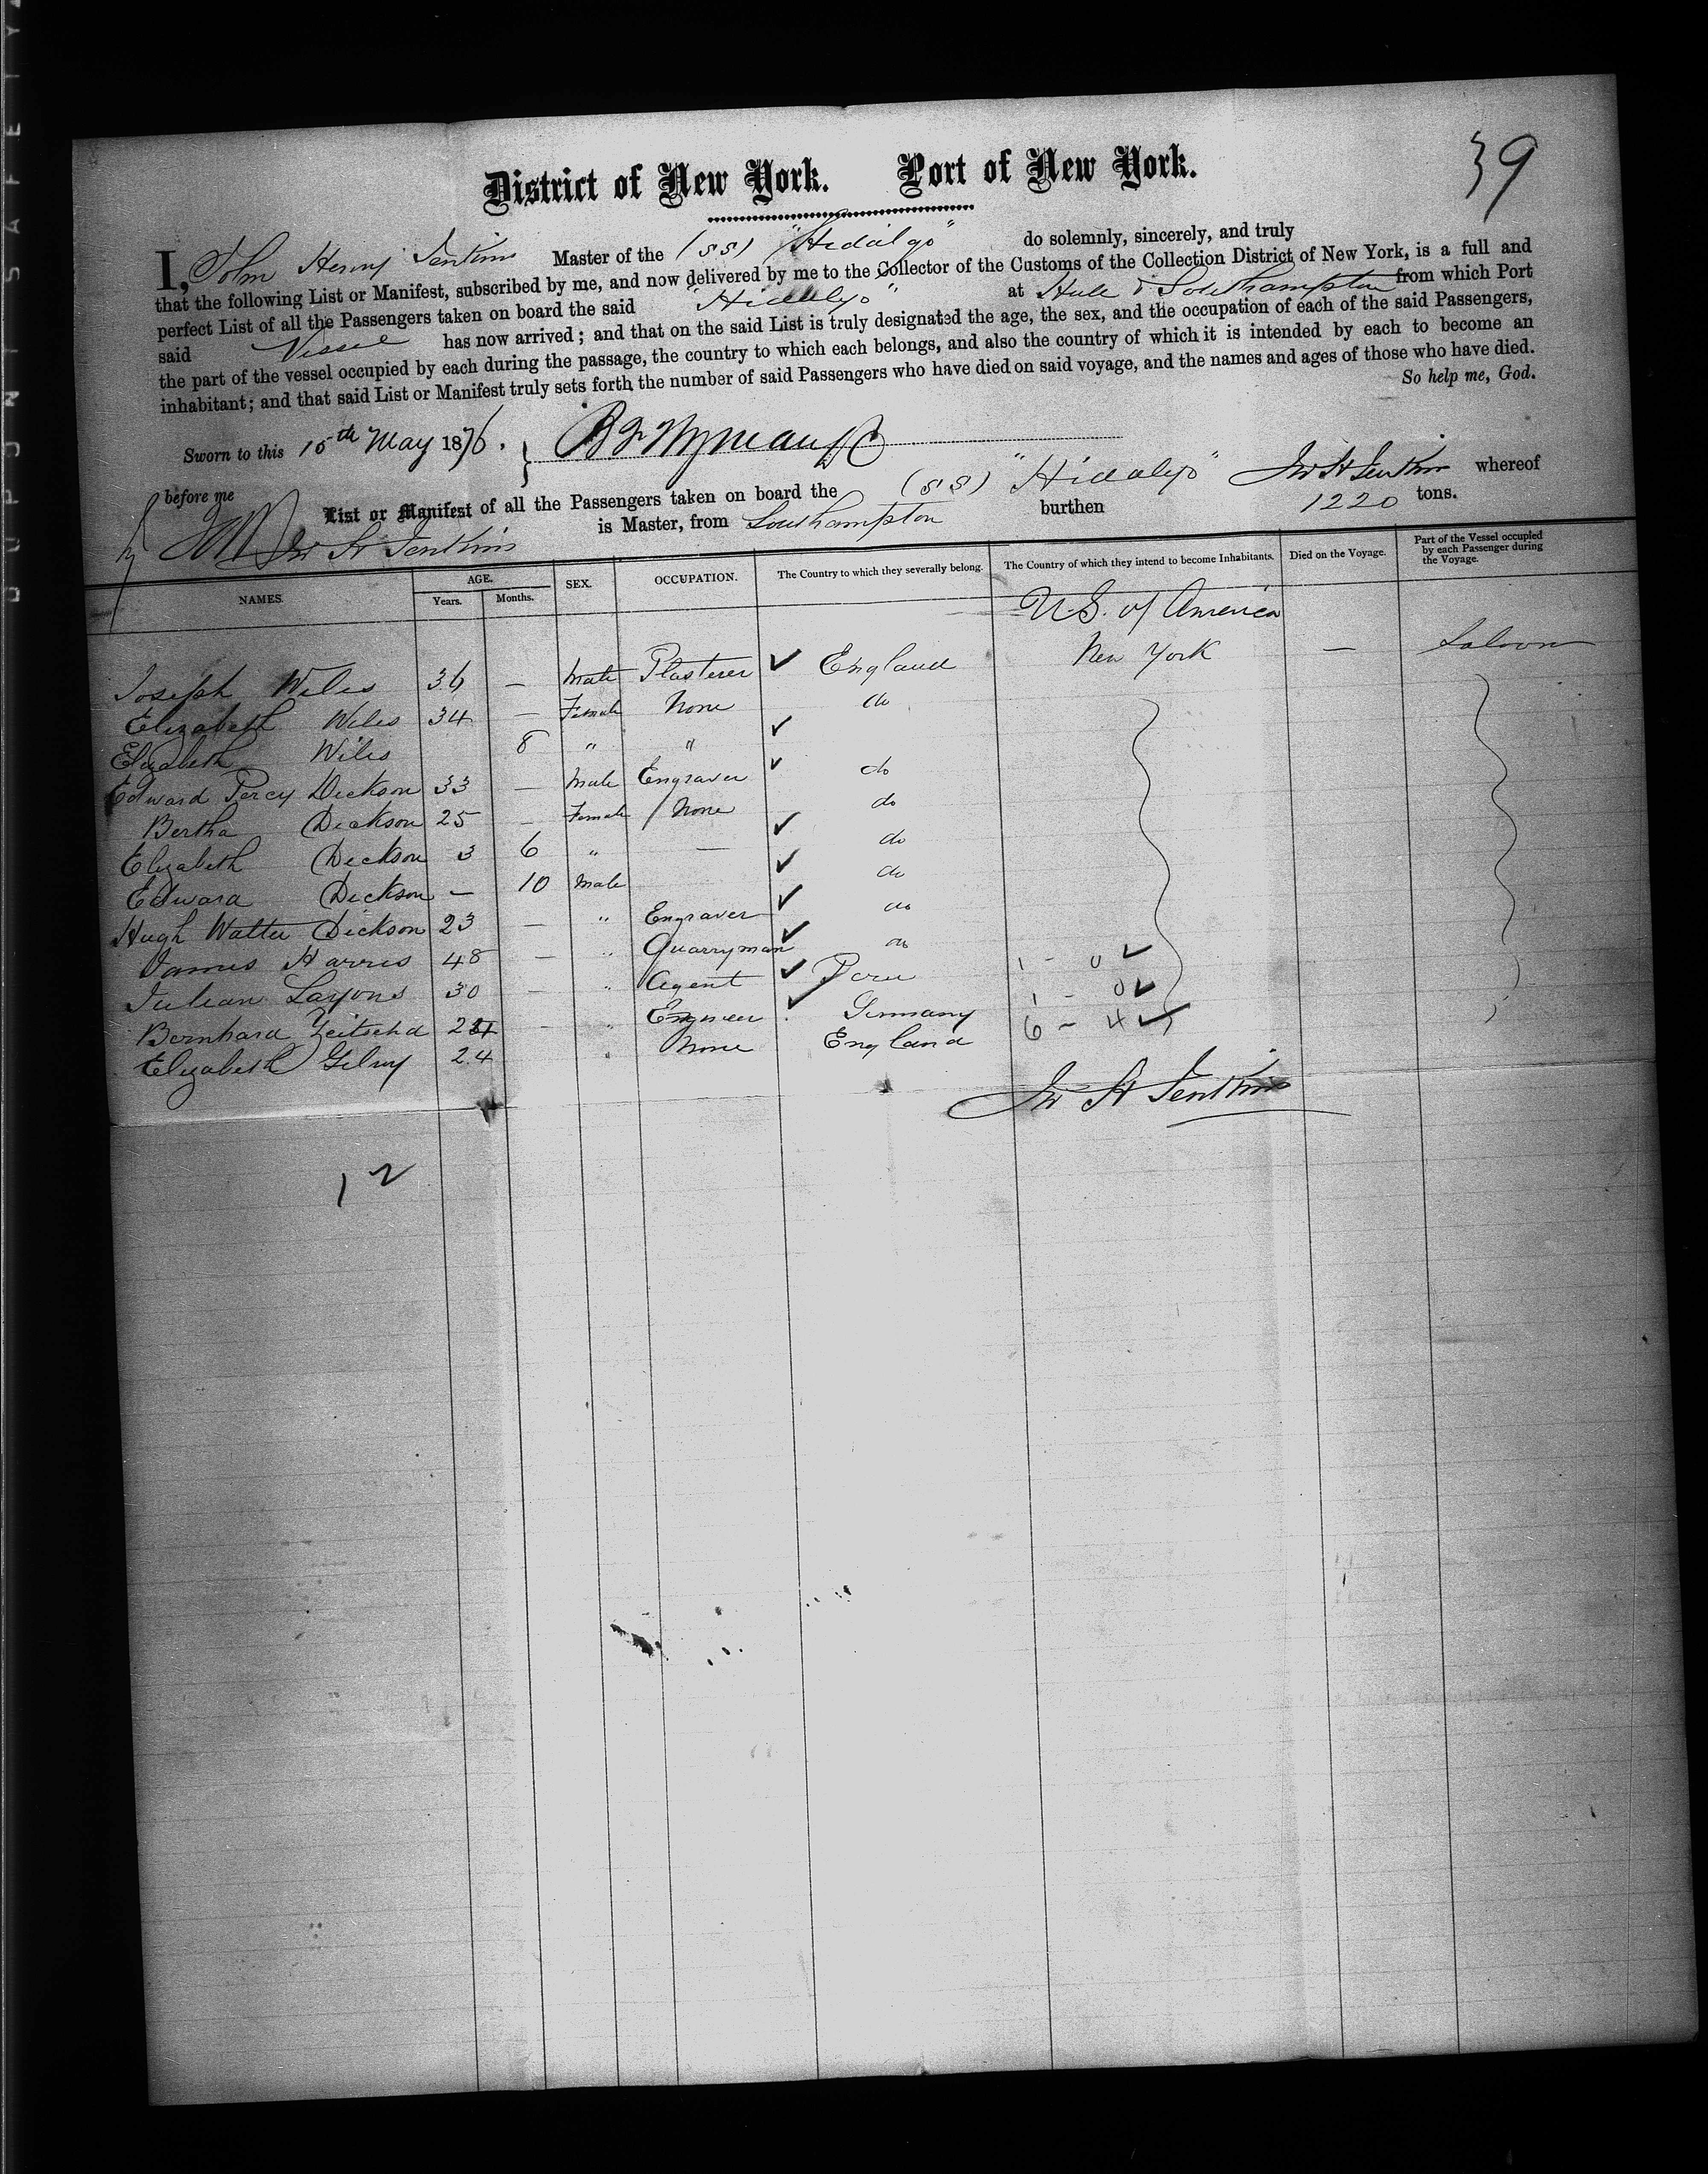 39
District of New York. Port of New York.
I, John Henry Jenkins Master of the (SS) "Hidalgo" do solemnly, sincerely, and truly
that the following List or Manifest, subscribed by me, and now delivered by me to the Collector of the Customs of the Collection District of New York, is a full and
perfect List of all the Passengers taken on board the said "Hidalgo" at Hull & Southampton from which Port
said Vessel has now arrived; and that on the said List is truly designated the age, the sex, and the occupation of each of the said Passengers,
the part of the vessel occupied by each during the passage, the country to which each belongs, and also the country of which it is intended by each to become an
inhabitant; and that said List or Manifest truly sets forth the number of said Passengers who have died on said voyage, and the names and ages of those who have died.
So help me, God.
Sworn to this 15th May 1876.
before me
List or Manifest of all the Passengers taken on board the (SS) "Hidalgo" Jno H Jenkins whereof
Jno H Jenkins is Master, from Southampton burthen 1220 tons.
NAMES. AGE. Years. Months. SEX. OCCUPATION. The Country to which they severally belong. The Country of which they intend to become Inhabitants. Died on the Voyage. Part of the Vessel occupied by each Passenger during the Voyage.
U.S. of America
Joseph Wiles 36 — Male Plasterer ✓ England New York — Saloon
Elizabeth Wiles 34 — Female None do
Elizabeth Wiles 8 " " ✓
Edward Percy Dickson 33 — Male Engraver ✓ do
Bertha Dickson 25 — Female None do
Elizabeth Dickson 3 6 " — ✓ do
Edward Dickson — 10 Male ✓ do
Hugh Walter Dickson 23 — " Engraver ✓ do
James Harris 48 — " Quarryman ✓ do 1 - 0 ✓
Julian 30 — " Agent ✓ Peru 1 - 0 ✓
Bernhard - " Engineer ✓ Germany 6 - 4 ✓
Elizabeth 24 " None England
Jno H Jenkins
12